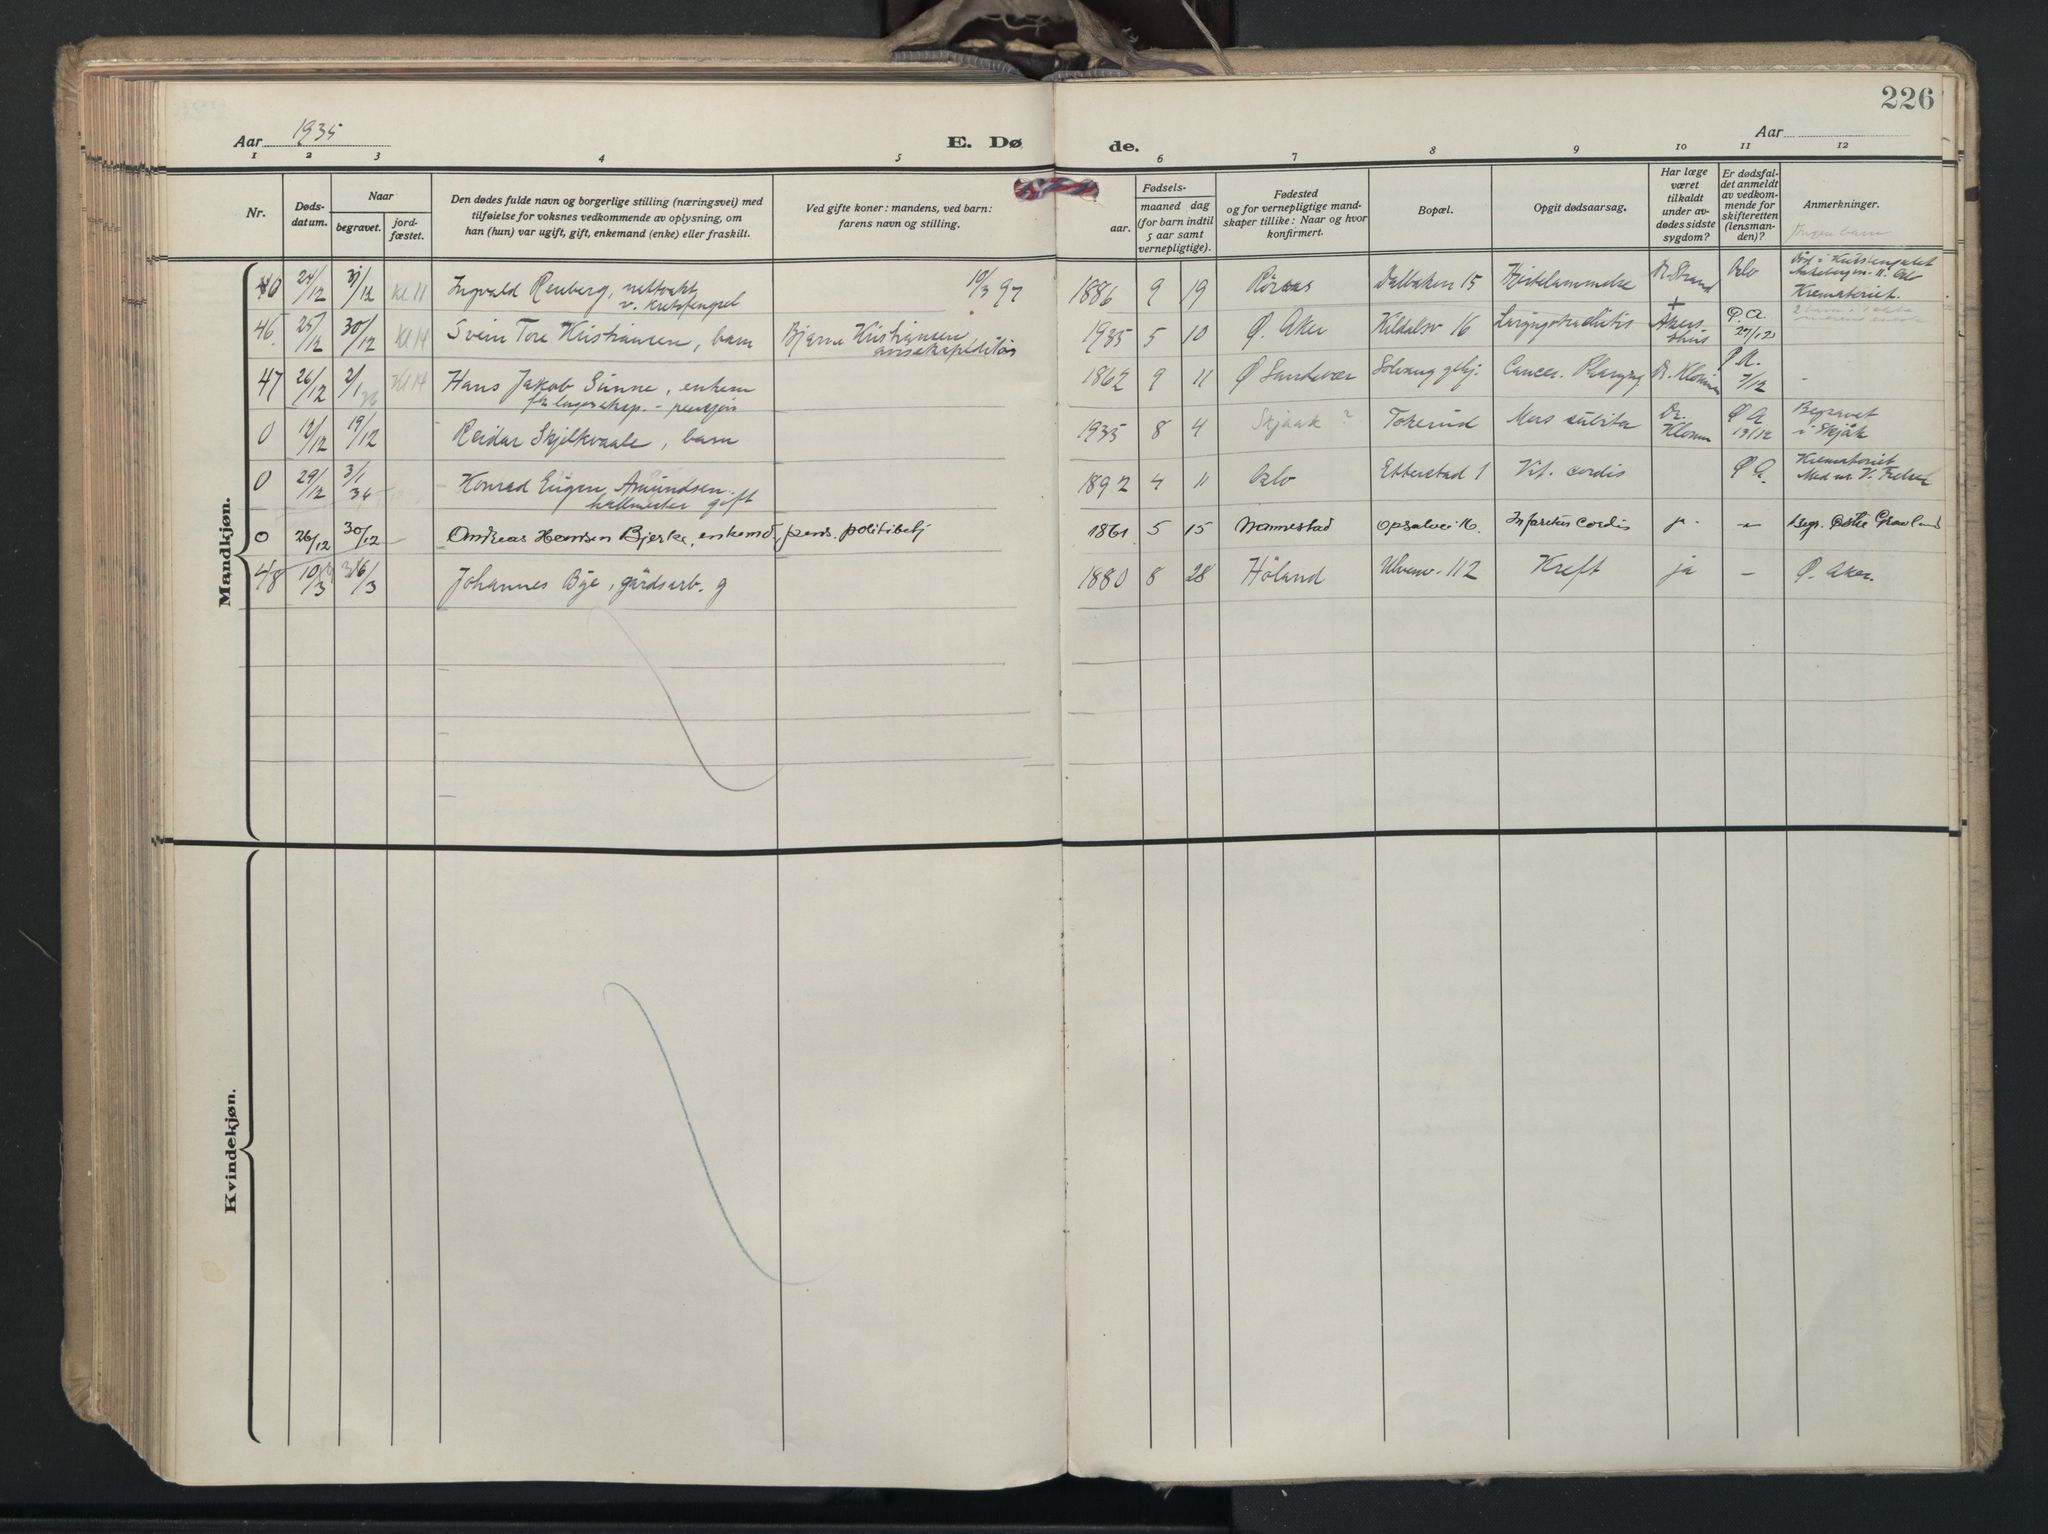 226
Aar 1935
E. Dø
de.
Aar
1 2 3 4 5 6 7 8 9 10 11 12
Nr.
Døds-
datum.
Naar
begravet.
jord-
fæstet.
Den dødes fulde navn og borgerlige stilling (næringsvei) med
tilføielse for voksnes vedkommende av oplysning, om
han (hun) var ugift, gift, enkemand (enke) eller fraskilt.
Ved gifte koner: mandens, ved barn:
farens navn og stilling.
Fødsels-
aar.
maaned dag
(for barn indtil
5 aar samt
vernepligtige).
Fødested
og for vernepligtige mand-
skaper tillike: Naar og hvor
konfirmert.
Bopæl.
Opgit dødsaarsag.
Har læge
været
tilkaldt
under av-
dødes sidste
sygdom?
Er dødsfal-
det anmeldt
av vedkom-
mende for
skifteretten
(lensman-
den)?
Anmerkninger.
Mandkjøn.
0 24/12 31/12 kl 11 Ingvald Renberg, nettvakt 1886 9 19 Røraas Dalbaken 15 Hjertelammelse Dr. Strand Oslo
v. kretsfengsel
Krematoriet.
46. 25/12 30/12 kl 14 Svein Tore Kristiansen, barn Bjarne Kristiansen 1935 5 10 Ø. Aker Kildalsv 16 Laryngotracheitis Akers-hus Ø. A. 27/12
avisekspeditør
47 26/12 2/1 36 Kl 14 Hans Jakob Sunne, enkem 1862 9 11 Ø Sandsvær Solvang Cancer. Dr. Ø. A. 7/12 -
fhv lagereksp. - pensjon
0 12/12 19/12 Reidar Skjelkvaale, barn 1935 8 4 Skjaak ? Tokerud Mors subita Dr. Ø A 13/12 Begravet
i Skjåk
0 29/12 3/1 36 Konrad Eugen Amundsen. 1892 4 11 Oslo Etterstad 1 Vit. cordis Ø A. Krematoriet
gift
0 26/12 30/12 Andreas Hansen Bjerke, enkemd. pens. politibetj 1861 5 15 Vannestad Opsalvei 16. Infarctus cordis ja - - Begr. Østre Gravlund
48 10/3 16/3 Johannes Bye, gårdsarb. g 1880 8 28 Høland Ulvenv. 112 Kreft ja - Ø. Aker.
Kvindekjøn.